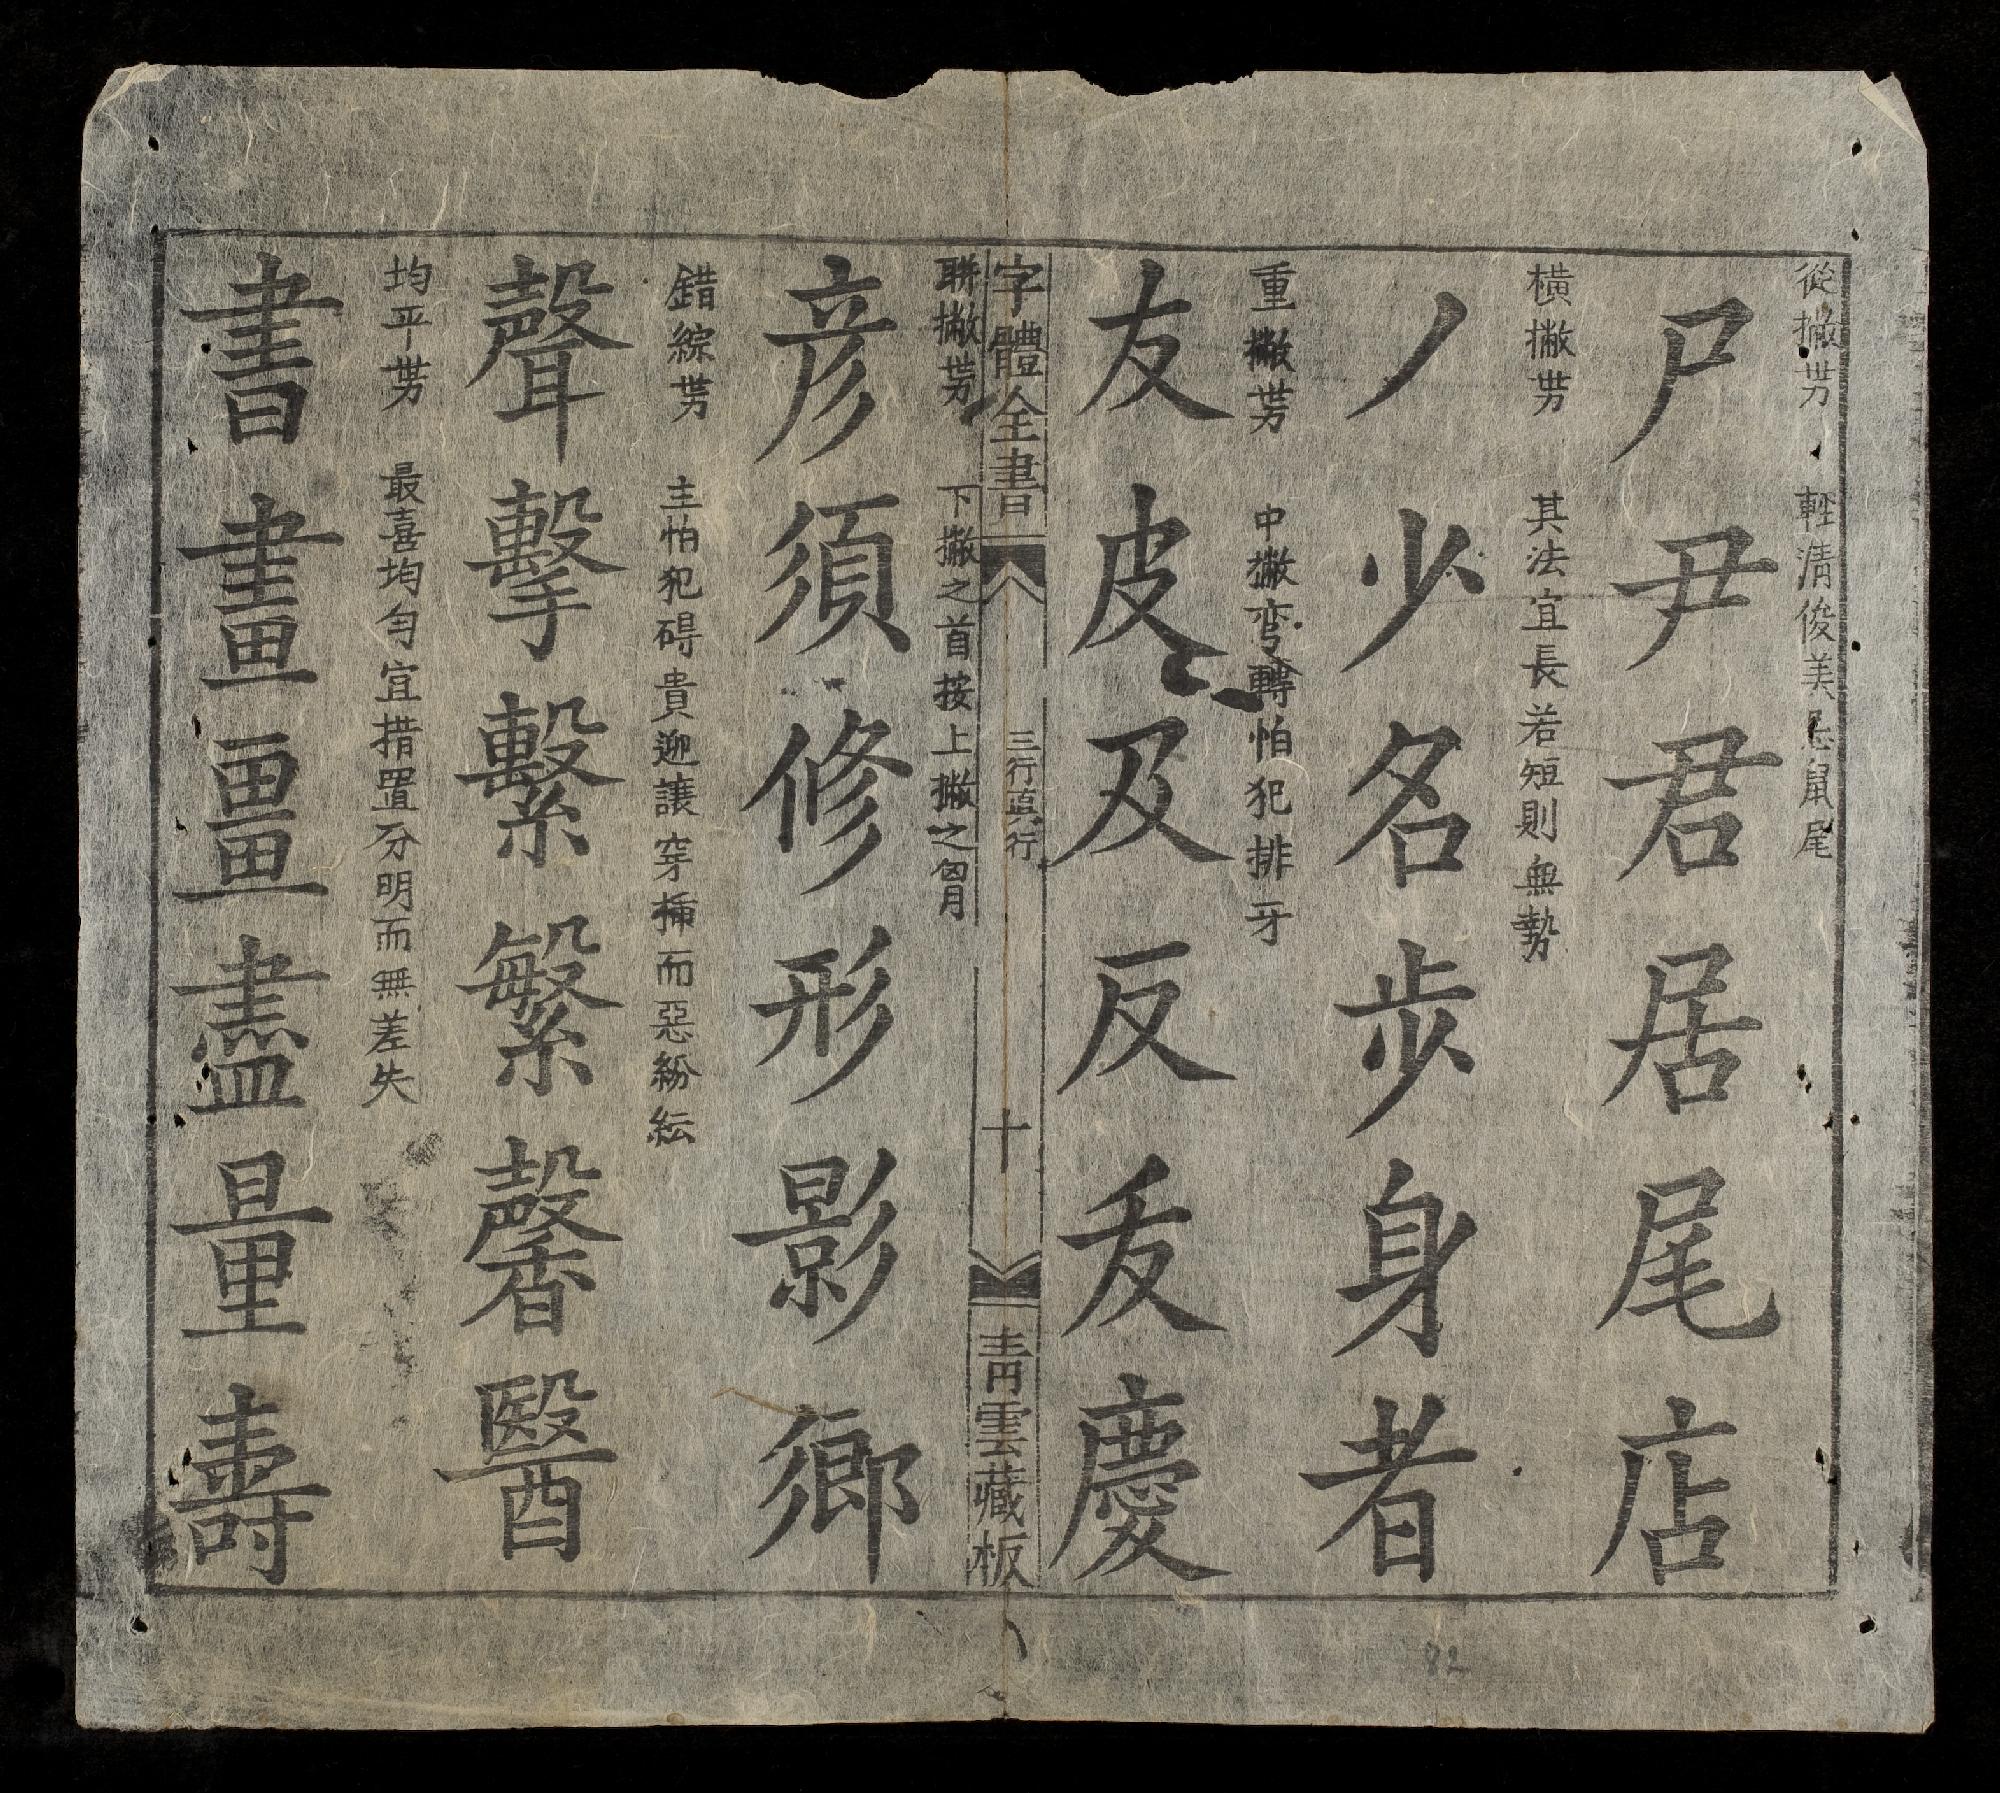 從撇势 輕清俊美忌鼠尾
尸尹君居尾店
橫撇势 其法宜長若短則無勢
丿少名步身者
重撇势 中撇弯轉怕犯排牙
友皮及反𠭇慶
字體全書 三行眞行 十 靑雲藏板
聮撇势 下撇之首按上撇之胷
彦須修形影鄉
錯綜势 主怕犯碍貴迎讓穿揷而惡紛紜
聲擊繫繁馨醫
均平势 最喜均匀宜措置分明而無差失
書畫畺盡量壽
82